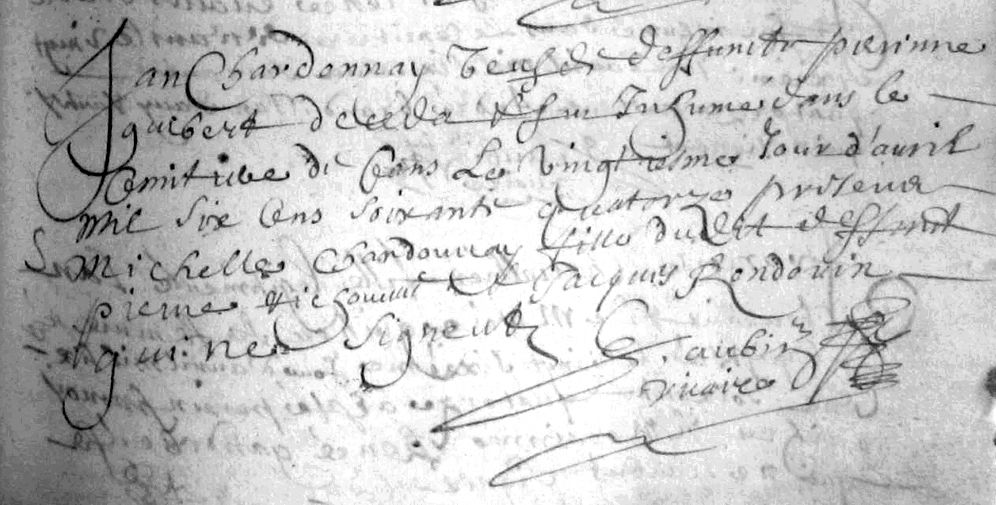 Jan Chardonnay veuf de deffuncte perinne
guibert decedé et fut Inhumé dans le
Cemitiere de Cens Le Vingtiesme Jour d'avril
mil six Cens soixante quatorze presens
Michelle Chardonnay fille dudit deffunct
pierre et Jacques Rondouin
qui ne signent
aubin
vicaire